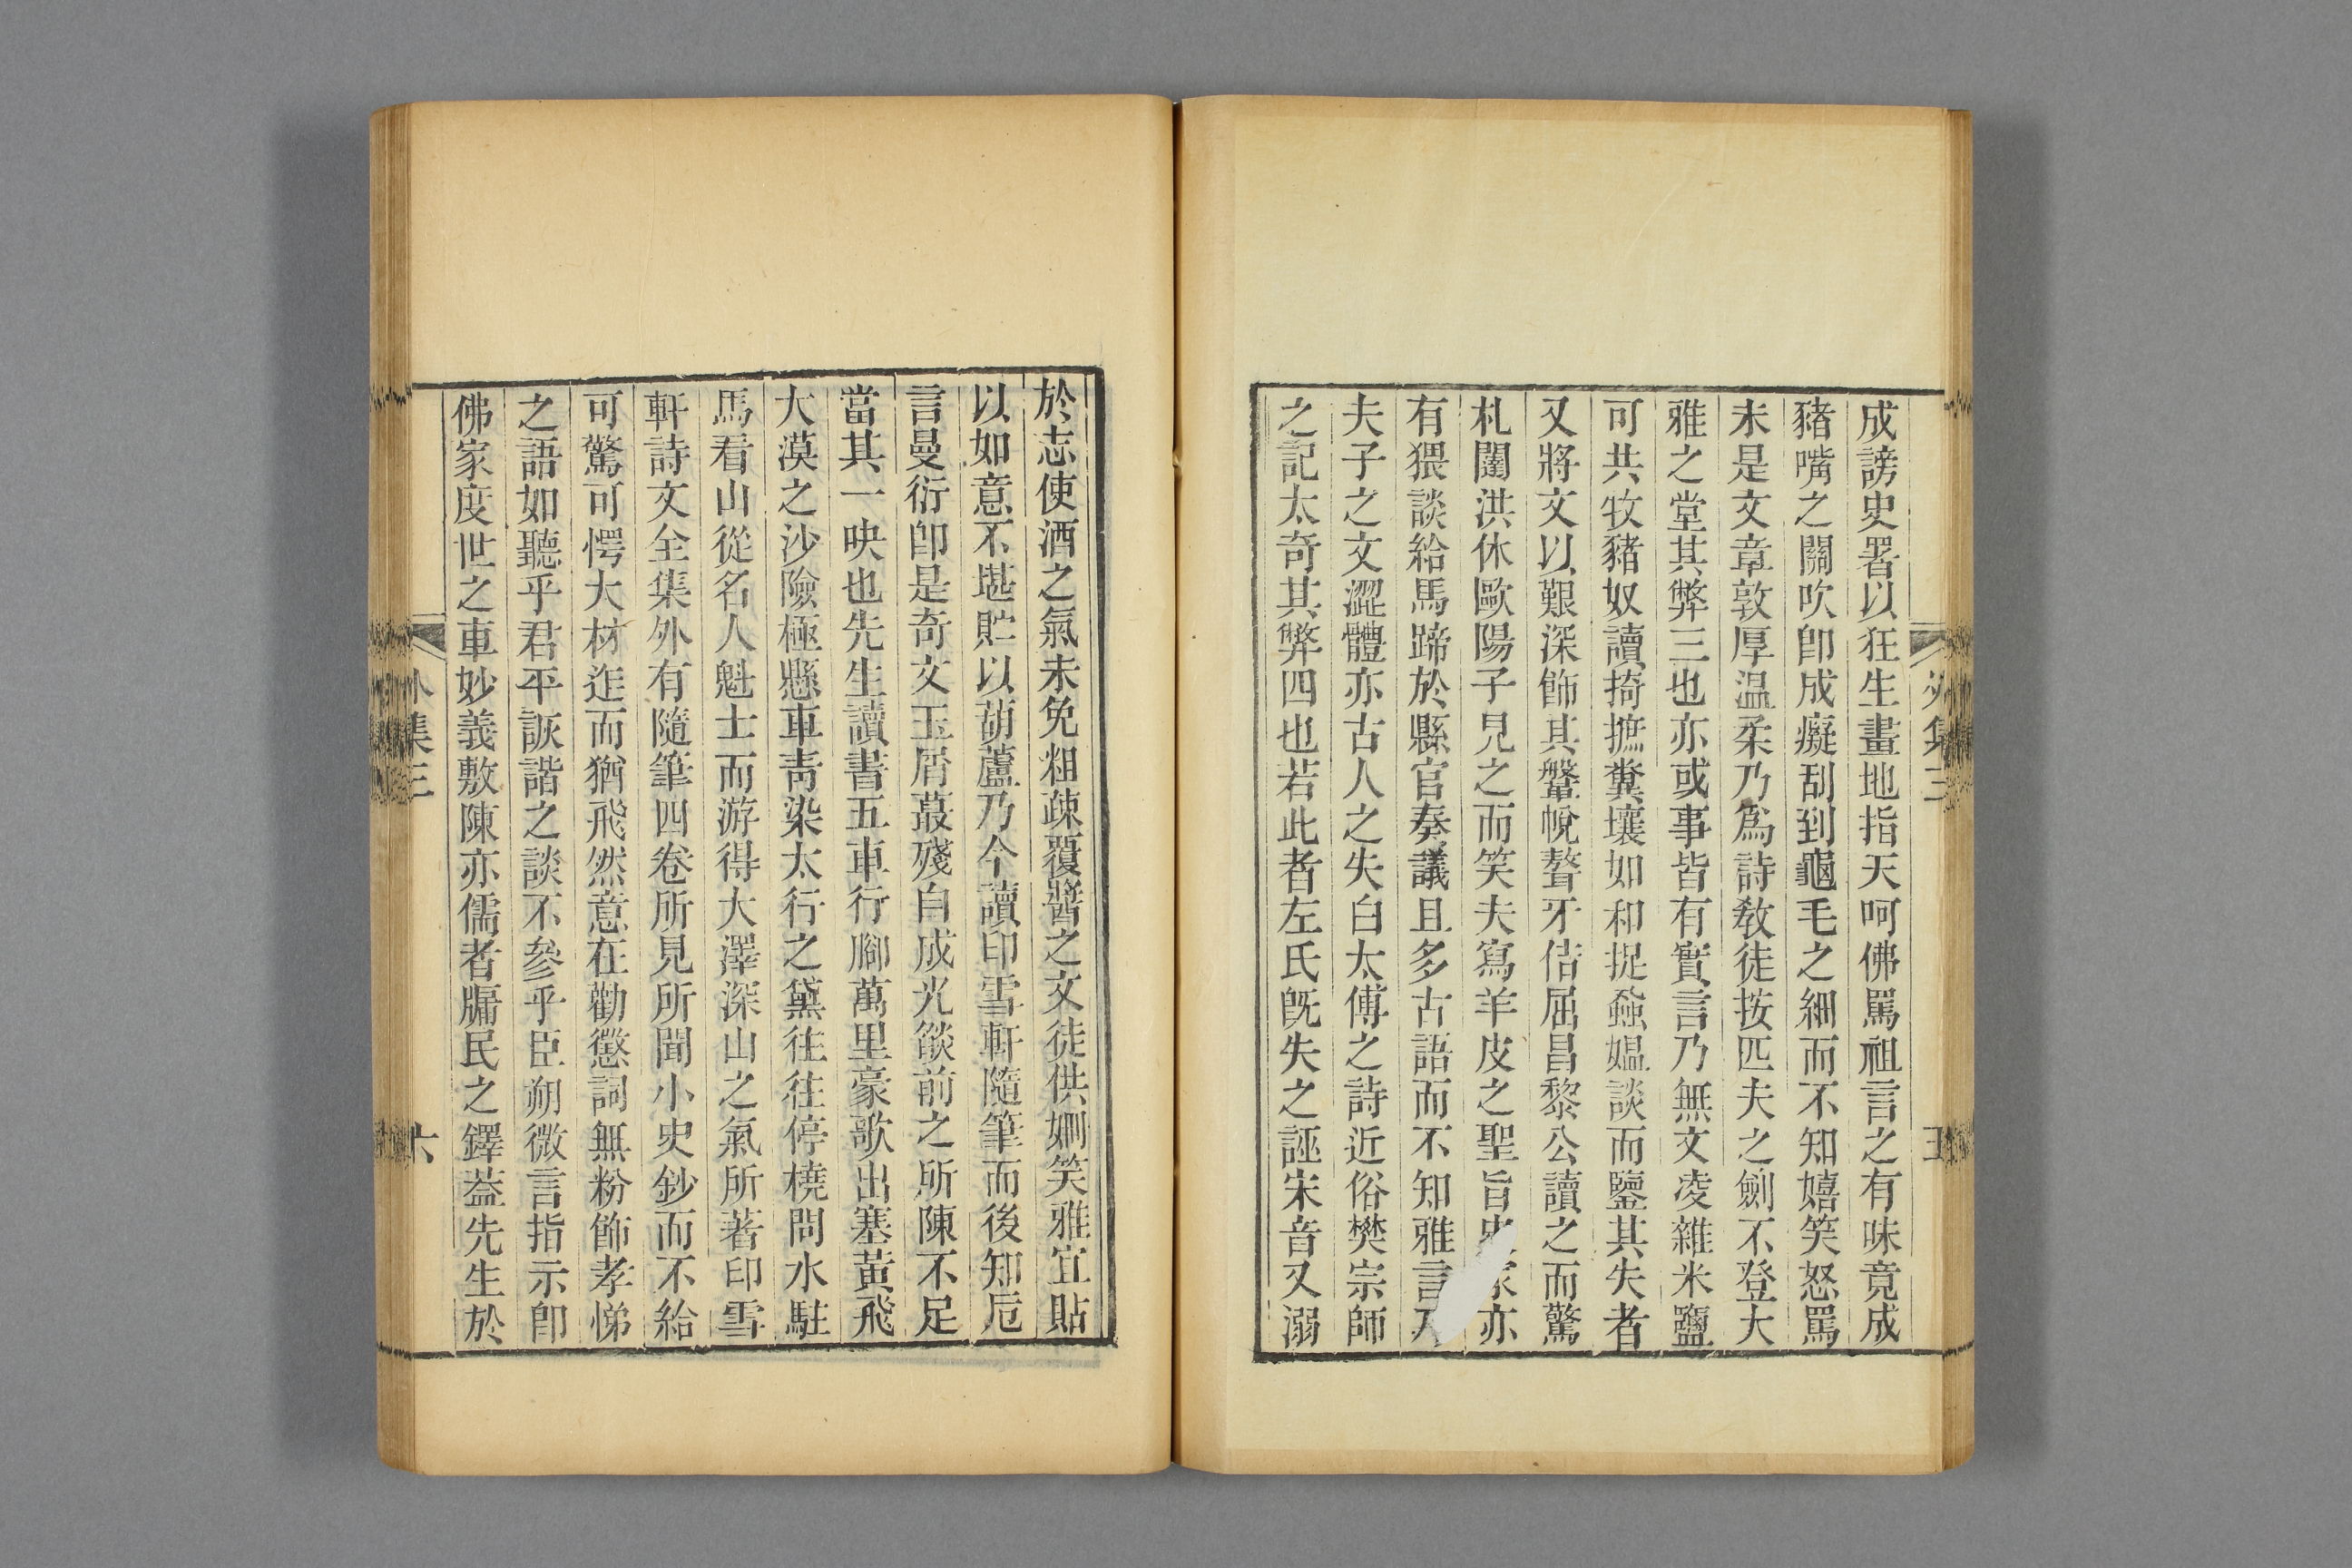 成謗史署以狂生畫地指天呵佛罵祖言之有味竟成
豬嘴之關吹卽成癡刮到龜毛之細而不知嬉笑怒罵
未是文章敦厚温柔乃爲詩敎徒按匹夫之劍不登大
雅之堂其弊三也亦或事皆有實言乃無文凌雜米鹽
可共牧豬奴讀掎摭糞壤如和捉蝨媼談而鑒其失者
又將文以艱深飾其鞶帨聱牙佶屈昌黎公讀之而驚
札闥洪休歐陽子見之而笑夫寫羊皮之聖旨史家亦
有猥談給馬蹄於縣官奏議且多古語而不知雅言
夫子之文澀體亦古人之失白太傅之詩近俗樊宗師
之記太奇其弊四也若此者左氏旣失之誣宋音又溺
外集三
五
於志使酒之氣未免粗疎覆醬之文徒供姍笑雅宜貼
以如意不堪貯以葫蘆乃今讀印雪軒隨筆而後知卮
言曼衍卽是奇文玉屑蕞殘自成光燄前之所陳不足
當其一吷也先生讀書五車行腳萬里豪歌出塞黃飛
大漠之沙險極懸車靑染太行之黛往往停橈問水駐
馬看山從名人魁士而游得大澤深山之氣所著印雪
軒詩文全集外有隨筆四卷所見所聞小史鈔而不給
可驚可愕大材迮而猶飛然意在勸懲詞無粉飾孝悌
之語如聽乎君平詼諧之談不參乎臣朔微言指示卽
佛家度世之車妙義敷陳亦儒者牖民之鐸葢先生於
外集三
六